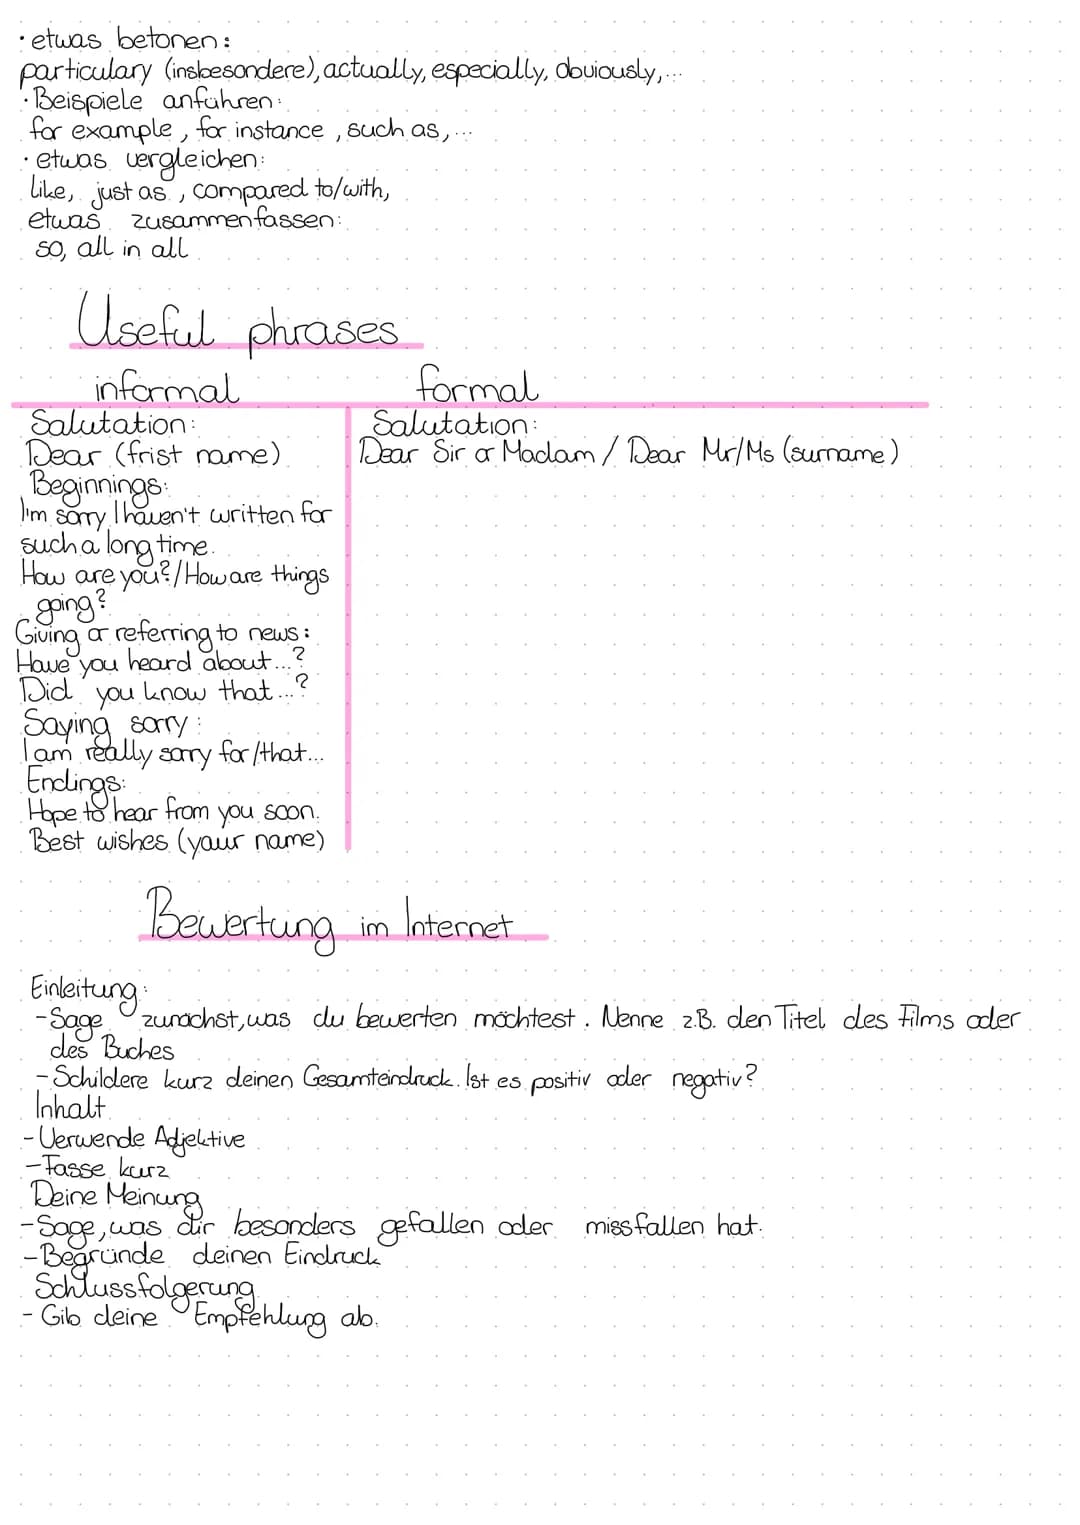 · etwas betonen:
particulary (insbesondere), actually, especially, obviously,...
· Beispiele anführen:
for example, for instance, such as,...
· etwas vergleichen:
like, just as, compared to/with,
etwas zusammenfassen:
so, all in all
Useful phrases
informal formal
Salutation: Salutation:
Dear (frist name) Dear Sir or Madam / Dear Mr/Ms (surname)
Beginnings:
I'm sorry I haven't written for
such a long time.
How are you?/How are things
going?
Giving or referring to news:
Have you heard about...?
Did you know that...?
Saying sorry:
I am really sorry for/that...
Endings:
Hope to hear from you soon.
Best wishes (your name)
Bewertung im Internet
Einleitung:
- Sage zunächst, was du bewerten möchtest. Nenne z.B. den Titel des Films oder
des Buches
- Schildere kurz deinen Gesamteindruck. Ist es positiv oder negativ?
Inhalt
- Verwende Adjektive
- Fasse kurz
Deine Meinung
- Sage, was dir besonders gefallen oder missfallen hat.
- Begründe deinen Eindruck
Schlussfolgerung
- Gib deine Empfehlung ab.